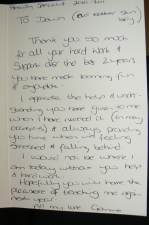 To Dawn
Thank you so much
for all your hard work &
Support over the last 2 years
You have made learning fun
& enjoyable
I appreciate the help & under-
standing you have given to me
when I have needed it (on many
occasions) & always
you time when feeling
stressed & falling behind
I would not be where I
am today without your help
& hard work
Hopefully you will have the
pleasure of teaching me again
next year!
All my love